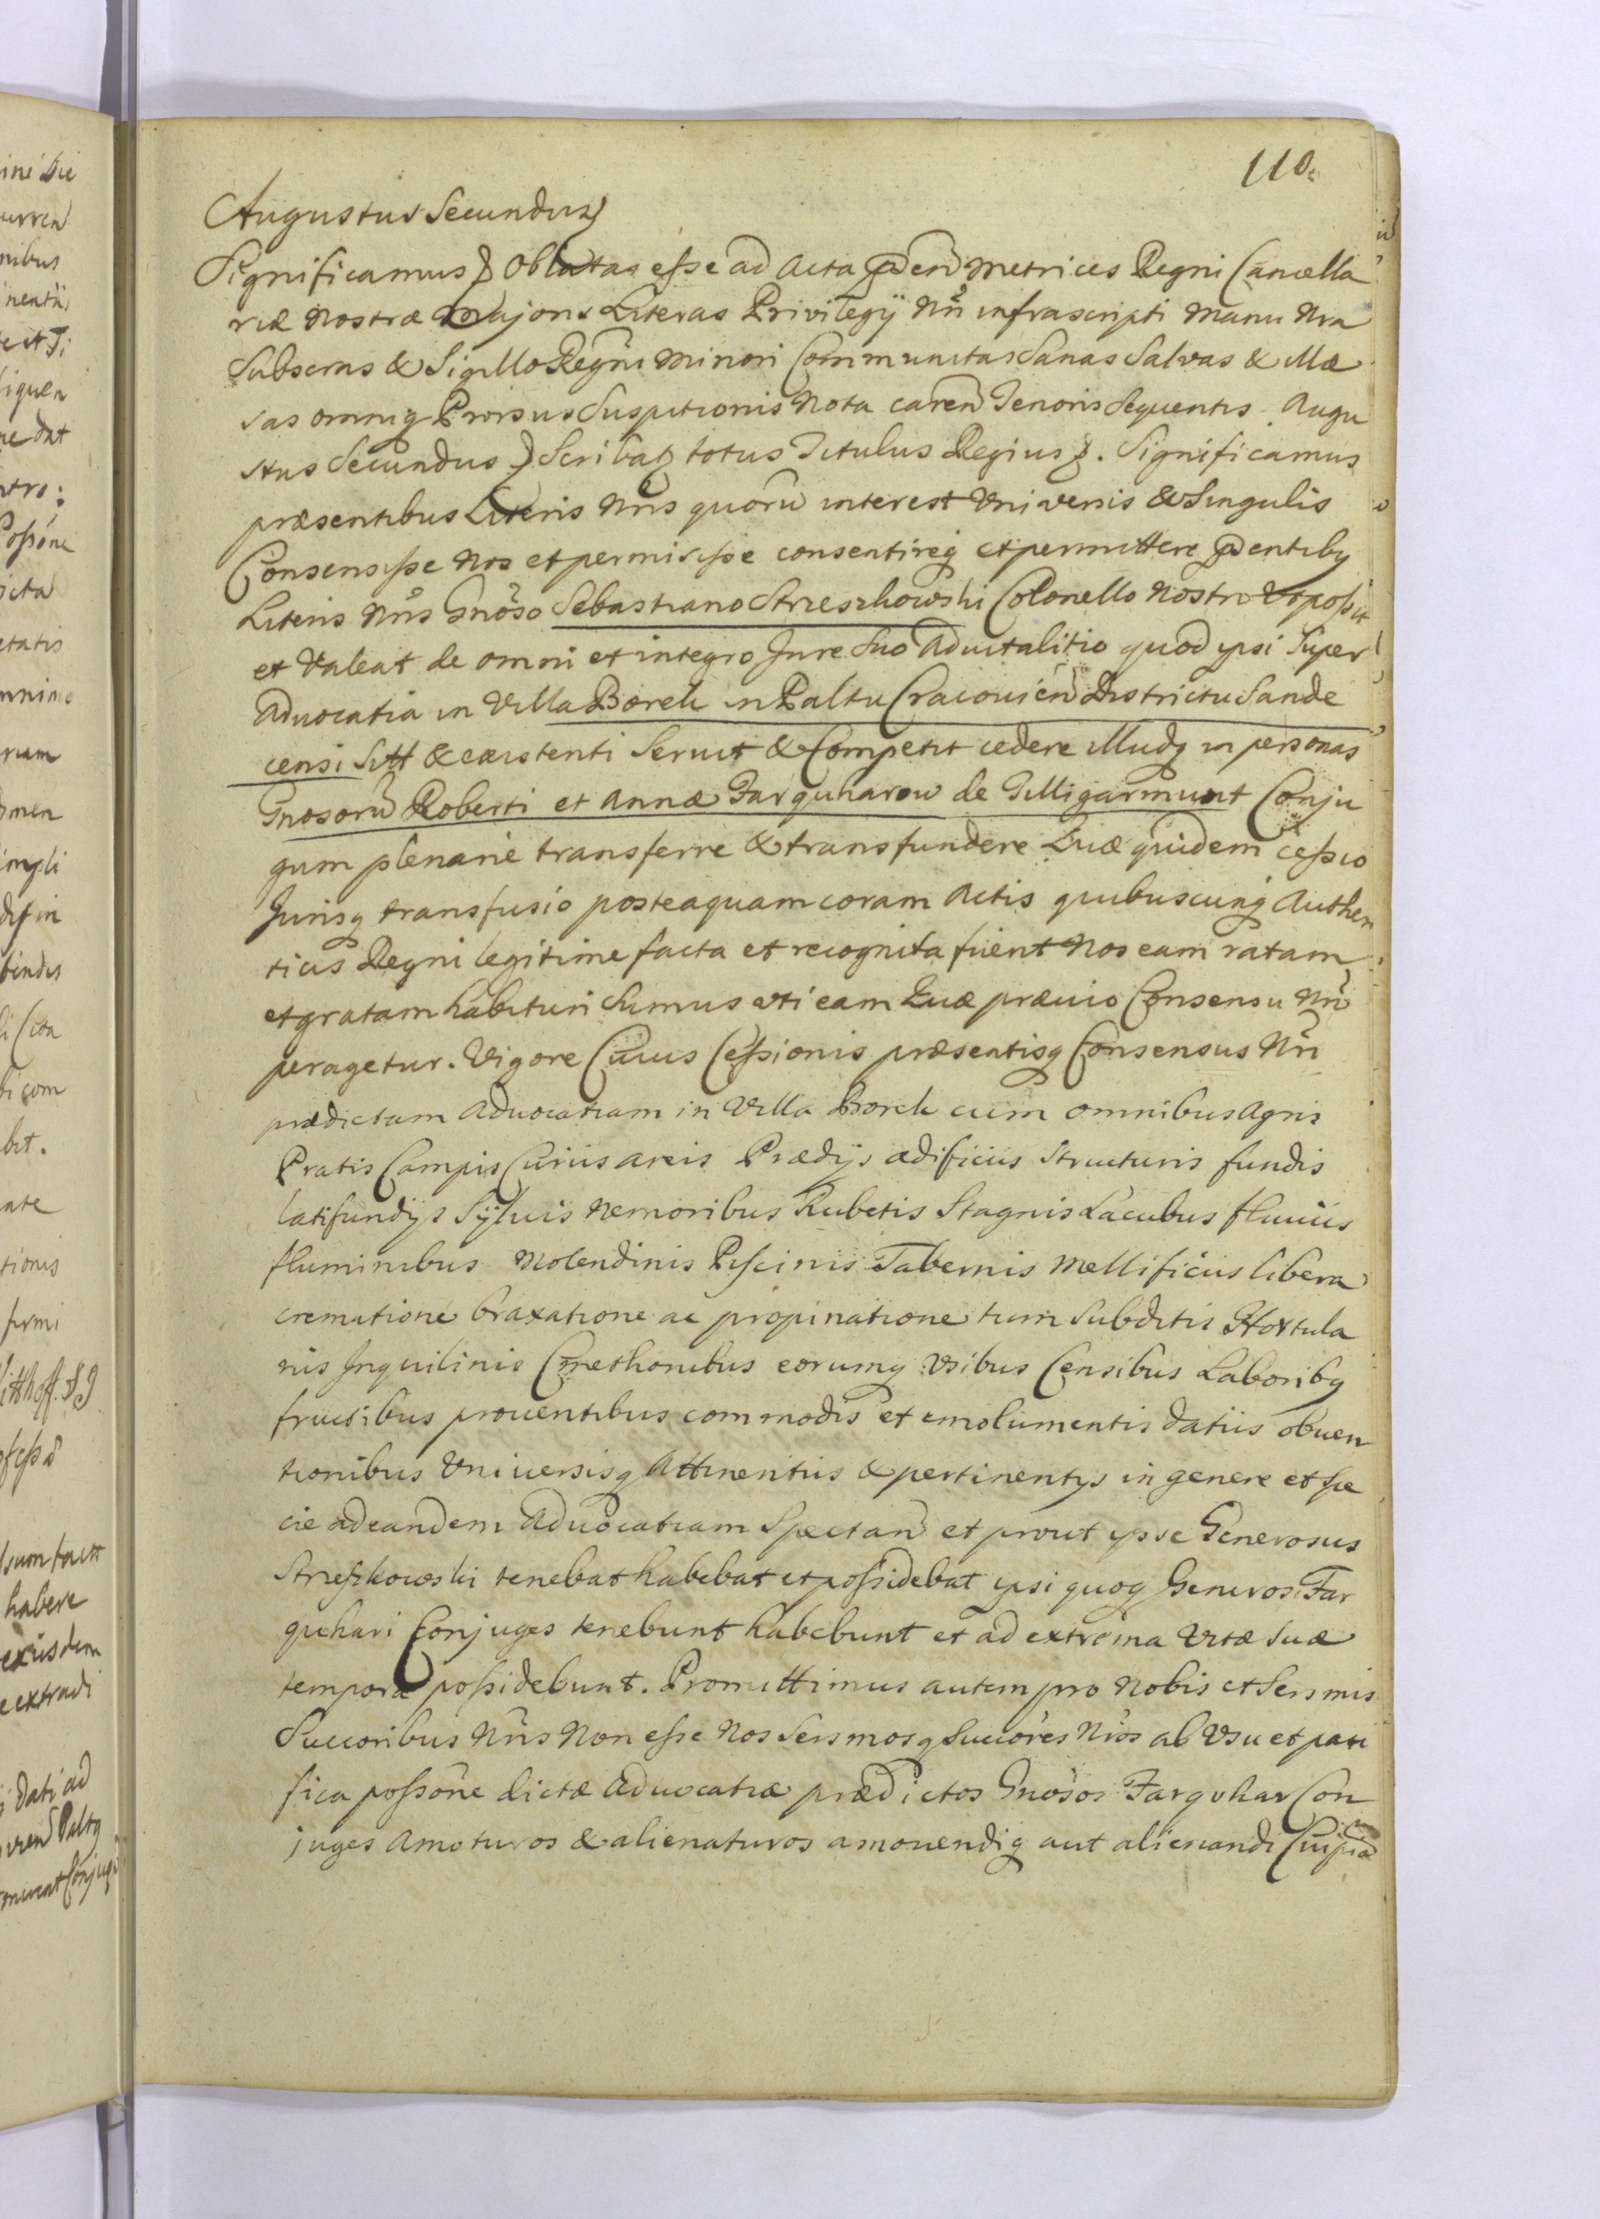 110.
Augustus Secundus
Significamus Oblatas esse ad Acta pñden Metrices Regni Cancella
riæ Nostræ Majoris Literas Privilegÿ Nri infrascripti Manu Nra
Subscras & Sigillo Regni Minori Communitas Sanas Salvas & illæ
sas omniq Prorsus Suspitionis Nota caren Tenoris Sequentis. Augu
stus Secundus Scribat totus Titulus Regius. Significamus
præsentibus Literis Nris quorũ interest Universis & Singulis
Consensisse Nos et permisisse consentireq et permittere pñdentibq
Literis Nris Gnoso Sebastiano Strzeszkowski Colonello Nostro Vt possit
et Valeat de omni et integro Jure Suo Aduitalitio quod ipsi Super
Aduocatia in Villa Borek in Paltu Cracouien Districtu Sande
censi Sitt & existenti Seruit & Competit cedere illudq in personas
Gnosorũ Roberti et Annæ Farquharow de Gilligarmunt Conju
gum plenarie transferre & transfundere Quæ quidem cessio
Jurisq transfusio posteaquam coram Actis quibuscunq Authen
ticis Regni legitime facta et recognita fuerit Nos eam ratam
et gratam habituri Sumus uti eam Quæ præuio Consensu Nro
peragetur. Vigore Cuius Cessionis præsentisq Consensus Nri
prædictam Aduocatiam in Villa Borek cum omnibus Agris
Pratis Campis Curiis areis Prædÿs ædificiis Structuris fundis
latifundÿs Sÿluis Nemoribus Rubetis Stagnis Lacubus fluuiis
fluminibus Molendinis Piscinis Tabernis Mellificiis libera
crematione braxatione ac propinatione tum Subditis Hortula
nis Inquilinis Cmethonibus eorumq Vsibus Censibus Laboribq
fructibus prouentibus commodis et emolumentis datiis obuen
tionibus Vniuersisq Attinentiis & pertinentÿs in genere et spe
cie ad eandem Aduocatiam Spectan et prout ipse Generosus
Strzeszkowski tenebat habebat et possidebat ipsi quoq Generosi Far
quhari Conjuges tenebunt habebunt et ad extrema Vitæ suæ
tempora possidebunt. Promittimus autem pro Nobis et Sersmis
Succoribus Nris Non esse Nos Sersmosq Succores Nros ab Vsu et paci
fica possone dictæ Aduocatiæ prædictos Gnosos Farquhar Con
juges Amoturos & alienaturos amouendiq aut alienandi Cuipiã